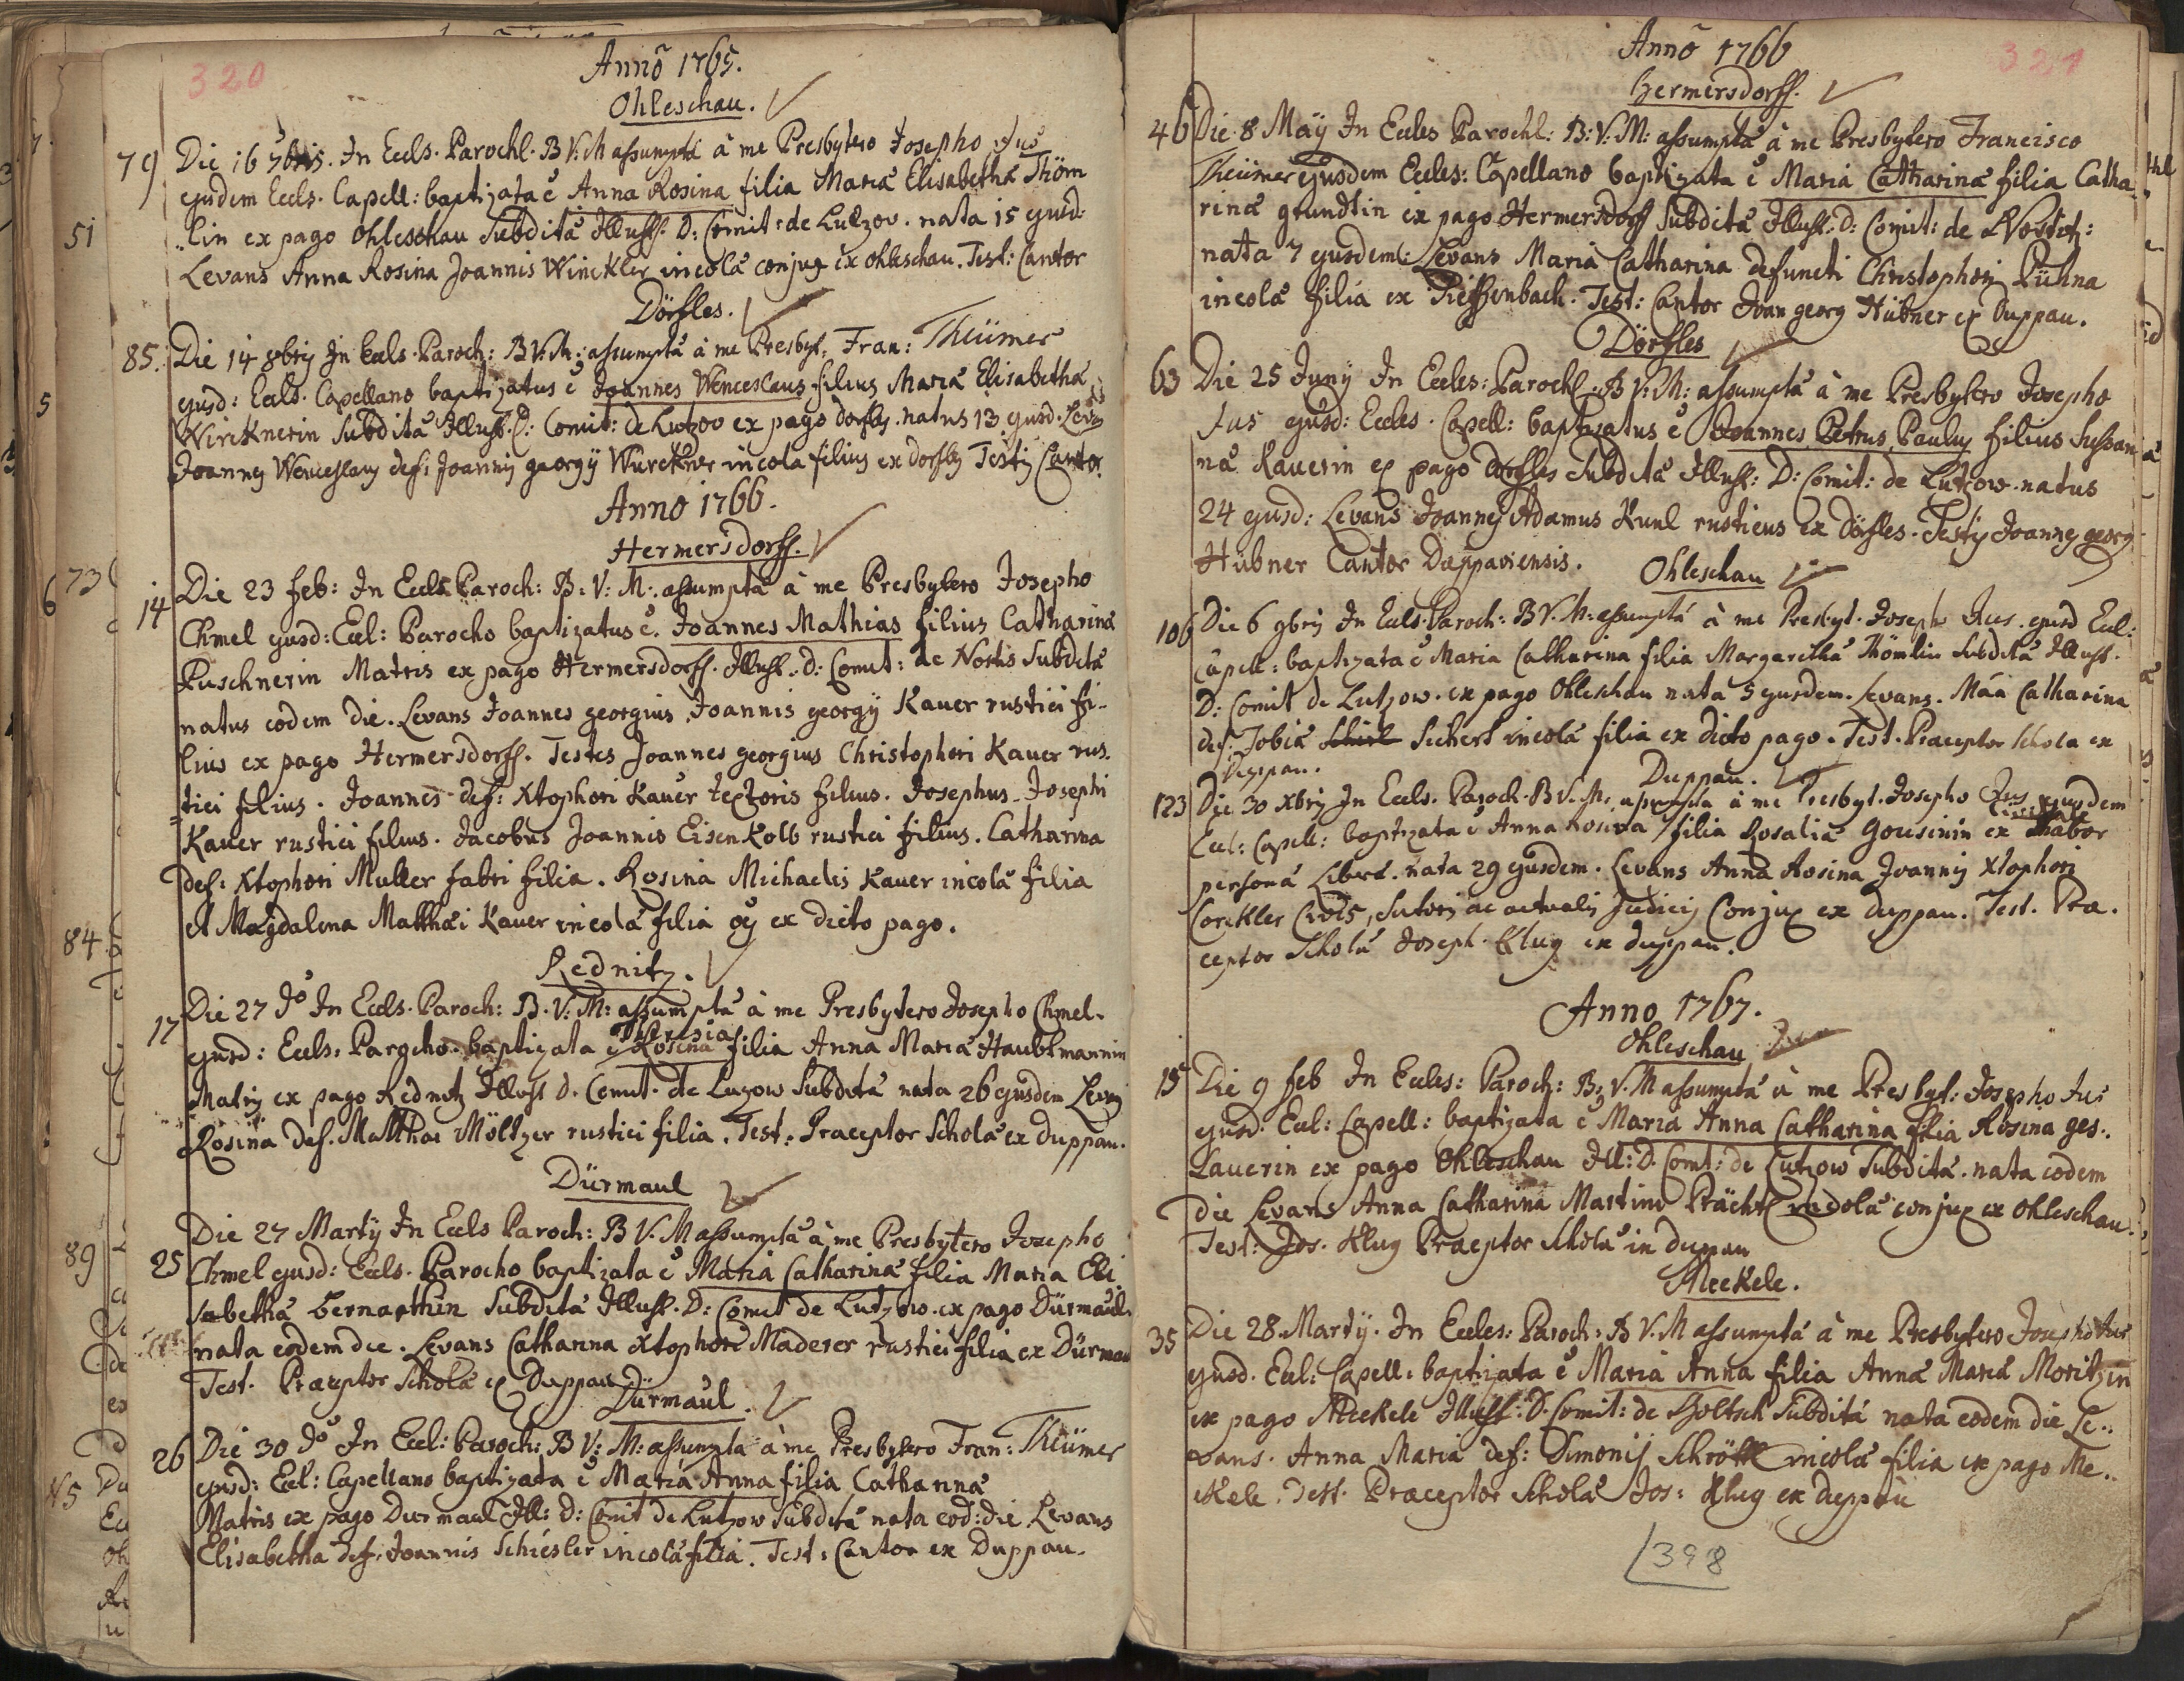 320
Anno 1765.
Ohleschau.
79 Die 16 7bris. In Eccls. Parochl. B V. M assumptâ à me Presbytero Josepho Jus
ejusdem Eccls. Capell: baptizata ē Anna Rosina filia Maria Elisabetha Thöm
lin ex pago Ohleschau Subdita Illuss. D: Comit: de Lutzov. nata 15 ejusd.
Levans Anna Rosina Joannis Winckler incola conjux ex Ohleschau. Test: Cantor
Dörfles.
85. Die 14 8bris In Eccls. Paroch: B V. M: assumptâ à me Presbyt. Fran: Theümer
ejusd: Eccls. Capellano baptizatus ē Joannes Wenceslaus filius Maria Elisabetha
Wircknerin Subdita Illuss. D: Comit: de Lutzov ex pago dorfles. natus 13 ejusd. Levans
Joannes Wenceslaus def: Joannis georgÿ Wurckner incola filius ex dorfles Testis Cantor.
Anno 1766.
Hermersdorff.
14 Die 23 feb: In Eccls Paroch: B: V: M. assumptâ à me Presbytero Josepho
Chmel ejusd: Eccl: Parocho baptizatus ē. Joannes Mathias filius Catharina
Puschnerin Matris ex pago Hermersdorff. Illuss. D: Comit: de Nostis Subdita
natus eodem die. Levans Joannes georgius Joannis georgÿ Kauer rustici fi-
lius ex pago Hermersdorff. Testes Joannes georgius Christophori Kauer rus.
tici filius. Joannes def: Xtophori Kauer textoris filius. Josephus Josephi
Kauer rustici filius. Jacobus Joannis Eisenkolb rustici filius. Catharina
def: Xtophori Muller fabri filia. Rosina Michaelis Kauer incola filia
et Magdalena Matthäi Kauer incola filia oēs ex dicto pago.
Rednitz.
17 Die 27 do In Eccls. Paroch: B. V: M: assumptâ à me Presbytero Josepho Chmel.
Theresia
ejusd: Eccls. Parocho baptizata ē Rosina filia Anna Maria Haubtmannin
Matris ex pago Rednitz Illuss D. Comit. de Luzow Subdita nata 26 ejusdem Levans
Rosina def. Matthai Möltzer rustici filia. Test. Praeceptor Schola ex duppau.
Dürmaul
25 Die 27 Martÿ In Eccls Paroch: B V. M assumptâ à me Presbytero Josepho
Chmel ejusd: Eccls. Parocho baptizata ē Maria Catharina filia Maria Eli
sabetha Bernarthin Subdita Illuss. D: Comit de Lutzow. ex pago Dürmaul.
nata eodem die. Levans Catharina Xtophori Maderer rustici filia ex Dürmau
Test. Praeceptor Schola ex Duppau
Dürmaul.
26 Die 30 do In Eccl: Paroch: B V: M: assumpta à me Presbytero Fran: Theümer
ejusd: Eccl: Capellano baptizata ē Maria Anna filia Catharina
Matris ex pago Durmaul Ill: D: Comit de Lutzow Subdita nata eod: die Levans
Elisabetha def: Joannis Schiesler incola filia. Test: Cantor ex Duppau.
321
Anno 1766
Hermersdorff.
46 Die 8 Maÿ In Eccles Parochl: B: V: M: assumptâ à me Presbytero Francisco
Theümer ejusdem Eccles: Capellano baptizata ē Maria Catharina filia Catha
rina grundlin ex pago Hermersdorf Subdita Illuss. D: Comit: de Nostitz:
nata 7 ejusdem: Levans Maria Catharina defuncti Christophori Pühna
incola filia ex Tieffenbach. Test: Cantor Joan georg Hübner ex Duppau.
Dörfles
63 Die 25 Junÿ In Eccles: Parochl. B V: M: assumptâ à me Presbytero Josepho
Jus ejusd: Eccles. Capell: baptizatus ē Joannes Petrus Paulus filius Sussan
na Kauerin ex pago dörfles Subdita Illuss: D: Comit: de Lutzow. natus
24 ejusd: Levans Joannes Adamus Kunl rusticus ex dörfles. Testis Joannes georg
Hübner Cantor Duppaviensis.
Ohleschau
106 Die 6 9bris In Eccls. Paroch: B V. M: assumptâ à me Presbyt. Josepho Jus. ejusd Eccl:
Capell: baptizata ē Maria Catharina filia Margaretha Thömlin Subdita Illuss.
D: Comit de Lutzow. ex pago Ohleschau nata 5 ejusdem. Levans. Mâa Catharina
def: Tobia Sichert incola filia ex dicto pago. Test. Praeceptor Schola ex
Duppau.
Duppau.
123 Die 30 Xbris In Eccls. Paroch. B V. M. assumpta à me Presbyt. Josepho Jus ejusdem
Eccl: Capell: baptizata ē Anna Rosina filia Rosalia Gousinin ex Thabor
persona Libera. nata 29 ejusdem. Levans Anna Rosina Joannis Xtophori
Corckler Civis, Sutoris ac actualis Judicis Conjux ex duppau. Test. Prae.
ceptor Schola Joseph. Klug ex duppau.
Anno 1767.
Ohleschau
15 Die 9 feb In Eccles: Paroch: B: V. M assumptâ à me Presbyt: Josepho Jus
ejusd. Eccl: Capell: baptizata ē Maria Anna Catharina filia Rosina ges..
Lauerin ex pago Ohleschau Ill: D. Comt: de Lutzow Subdita. nata eodem
die Levans Anna Catharina Martini Prächtl incola conjux ex Ohleschau.
Test: Jos. Klug Praeptor Schola in duppau
Meckele.
35 Die 28. Martÿ. In Eccles: Paroch: B V. M assumptâ à me Presbytero Josepho Jus
ejusd. Eccl: Capell: baptizata ē Maria Anna filia Anna Maria Moritzin
ex pago Meckele Illuss: D. Comit: de Goltsch Subdita nata eodem die Le..
vans. Anna Maria def: Simonis Schrötl incola filia ex pago Me..
ckele. Test. Praeceptor Schola Jos: Klug ex duppau
398